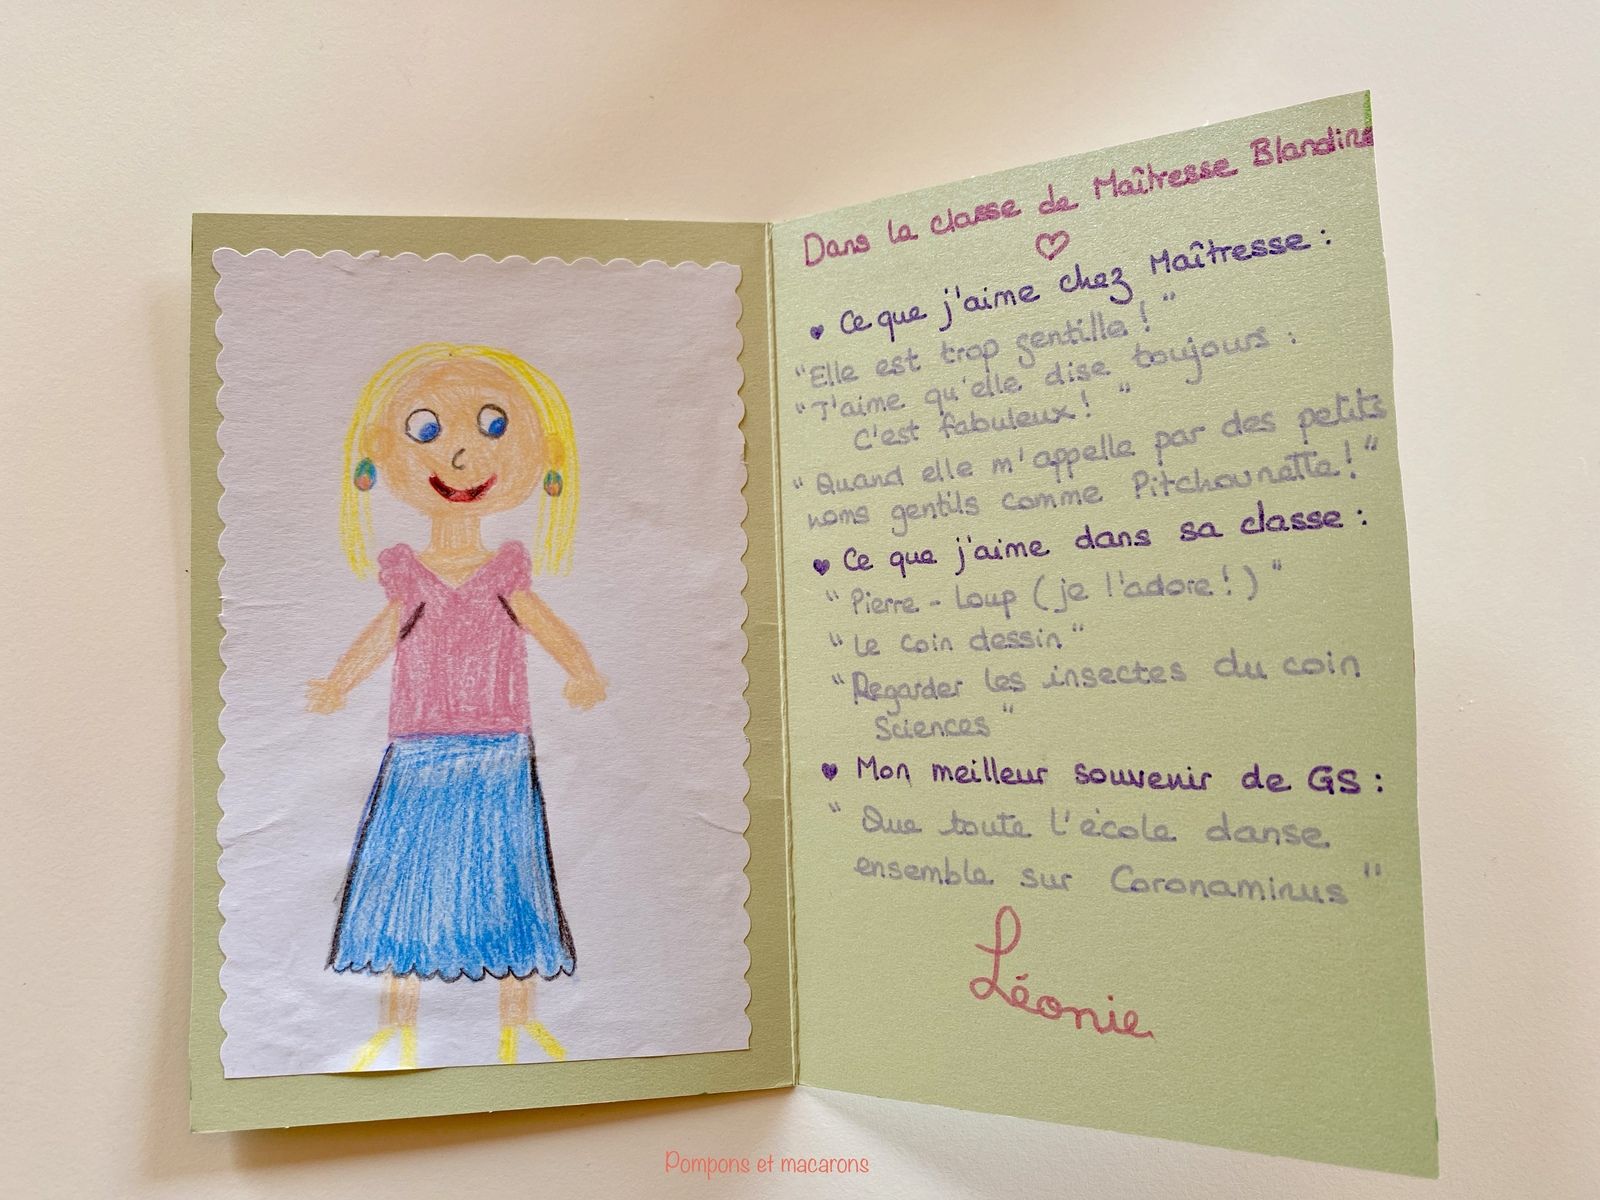 Dans la classe de Maîtresse Blandine
♥ Ce que j'aime chez Maîtresse :
"Elle est trop gentille ! "
"J'aime qu'elle dise toujours :
C'est fabuleux ! "
"Quand elle m'appelle par des petits
noms gentils comme Pitchounette ! "
♥ Ce que j'aime dans sa classe :
"Pierre - Loup (je l'adore ! ) "
"Le coin dessin"
"Regarder les insectes du coin
Sciences"
♥ Mon meilleur souvenir de GS :
"Que toute l'école danse
ensemble sur Coronaminus"
Léonie
Pompons et macarons